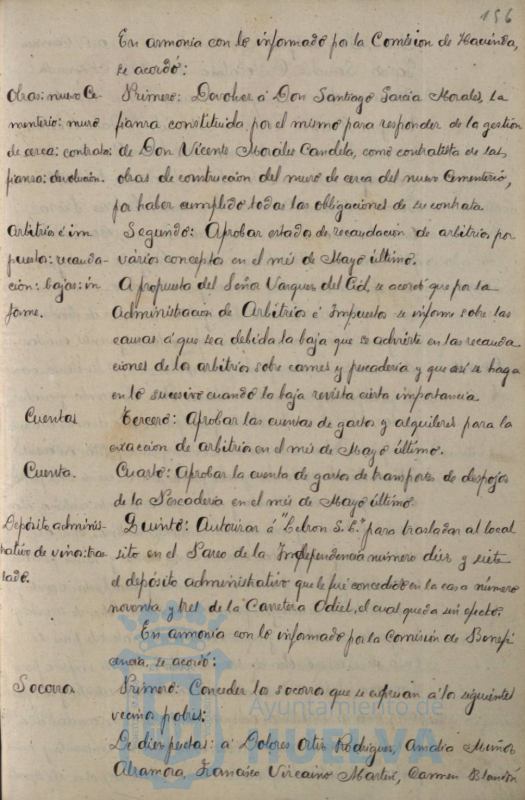 156
En armonía con lo informado por la Comision de Hacienda,
se acordó:
Obras: nuevo Ce-
menterio: muro
de cerca: contrato:
fianza: devolución.
Primero: Devolver á Don Santiago García Morales, la
fianza constituida por el mismo para responder de la gestión
de Don Vicente Morales Candela, como contratista de las
obras de construccion del muro de cerca del nuevo Cementerio,
por haber cumplido todas las obligaciones de su contrata.
Arbitrios é im
puestos: recauda-
ción: bajas: in
forme.
Segundo: Aprobar estados de recaudación de arbitrios por
varios conceptos en el mes de Mayo último.
A propuesta del Señor Vazques del Cid, se acordó que por la
Administracion de Arbitrios é Impuestos se informe sobre las
causas á que sea debida la baja que se advierte en las recauda
ciones de los arbitrios sobre carnes y pescadería y que así se haga
en lo sucesivo cuando la baja revista cierta importancia.
Cuentas
Tercero: Aprobar las cuentas de gastos y alquileres para la
exaccion de arbitrios en el mes de Mayo último.
Cuenta.
Cuarto: Aprobar la cuenta de gastos de transportes de despojos
de la Pescaderia en el mes de Mayo último.
Depósito adminis-
trativo de vinos: tras
lado.
Quinto: Autorizar á S. L." para trasladar al local
sito en el Paseo de la Independencia número diez y siete
el depósito administrativo que le fué concedido en la casa número
noventa y tres de la Carretera Odiel, el cual queda sin efecto.
En armonía con lo informado por la Comisión de Benefi
cencia, se acordó:
Socorros
Primero: Conceder los socorros que se expresan á los siguientes
vecinos pobres:
De diez pesetas: á Dolores Ortiz Rodrigues, Amalia Muñoz
Altamora, Francisco Vizcaino Martin, Carmen
Ayuntamiento de
HUELVA